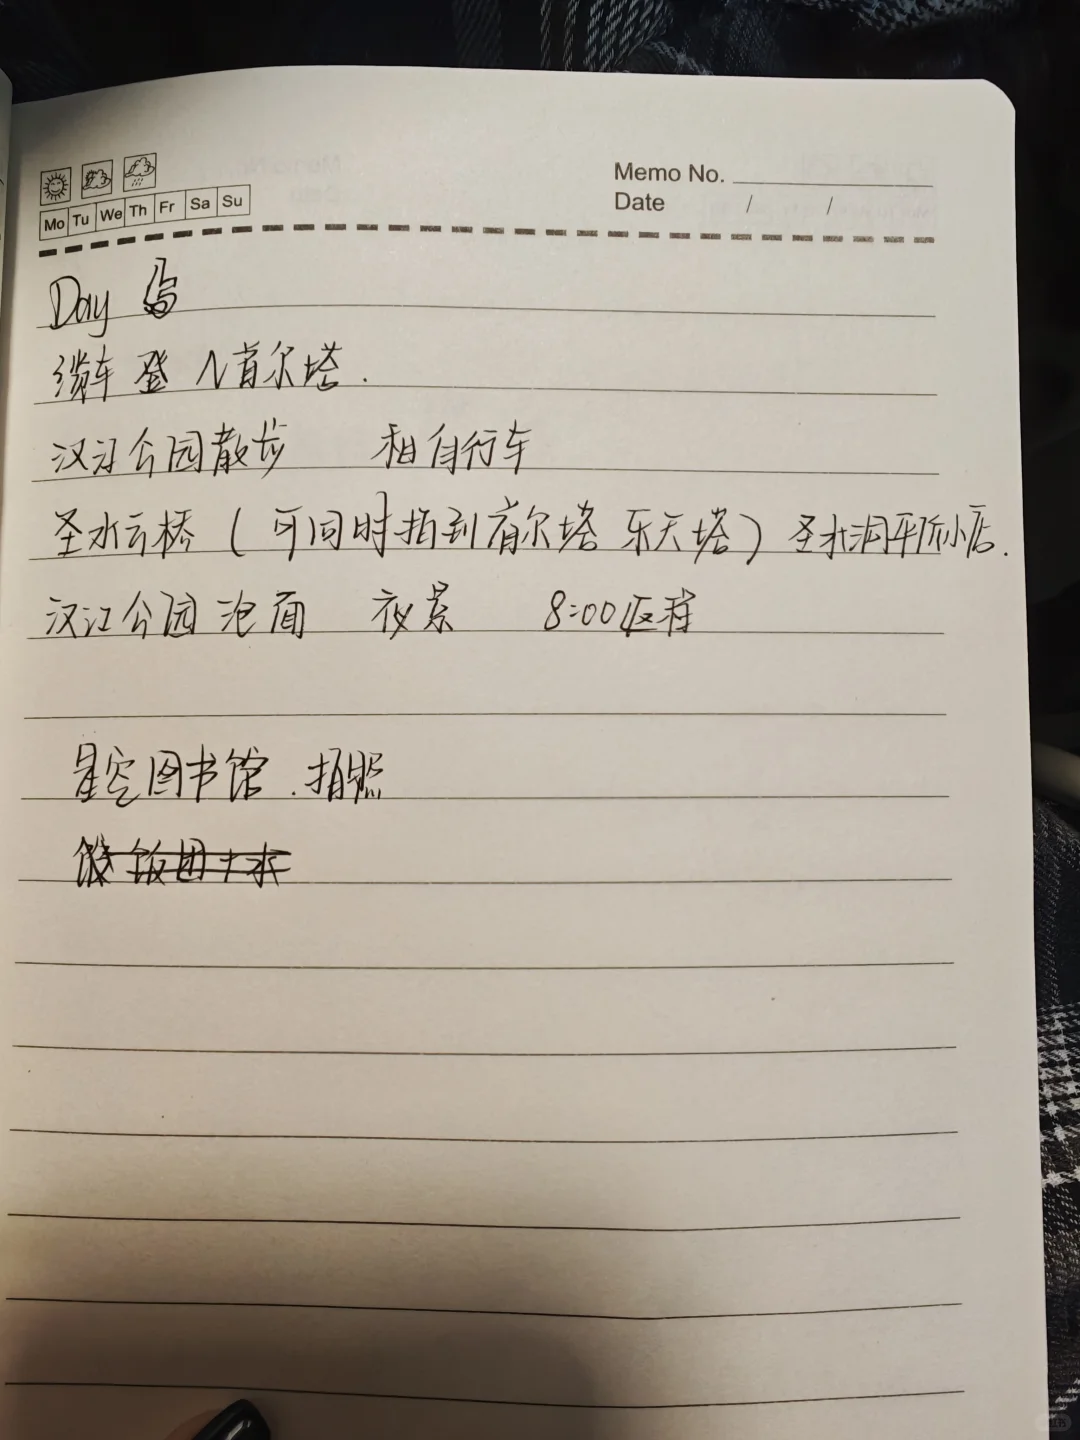 Memo No.
Date / /
Mo Tu We Th Fr Sa Su
Day
缆车 登 N首尔塔.
汉江公园散步 租自行车
圣水云桥 (可同时拍到首尔塔 乐天塔) 圣水洞平价小店.
汉江公园 泡面 夜景 8:00返程
星空图书馆.拍照
饭团+水